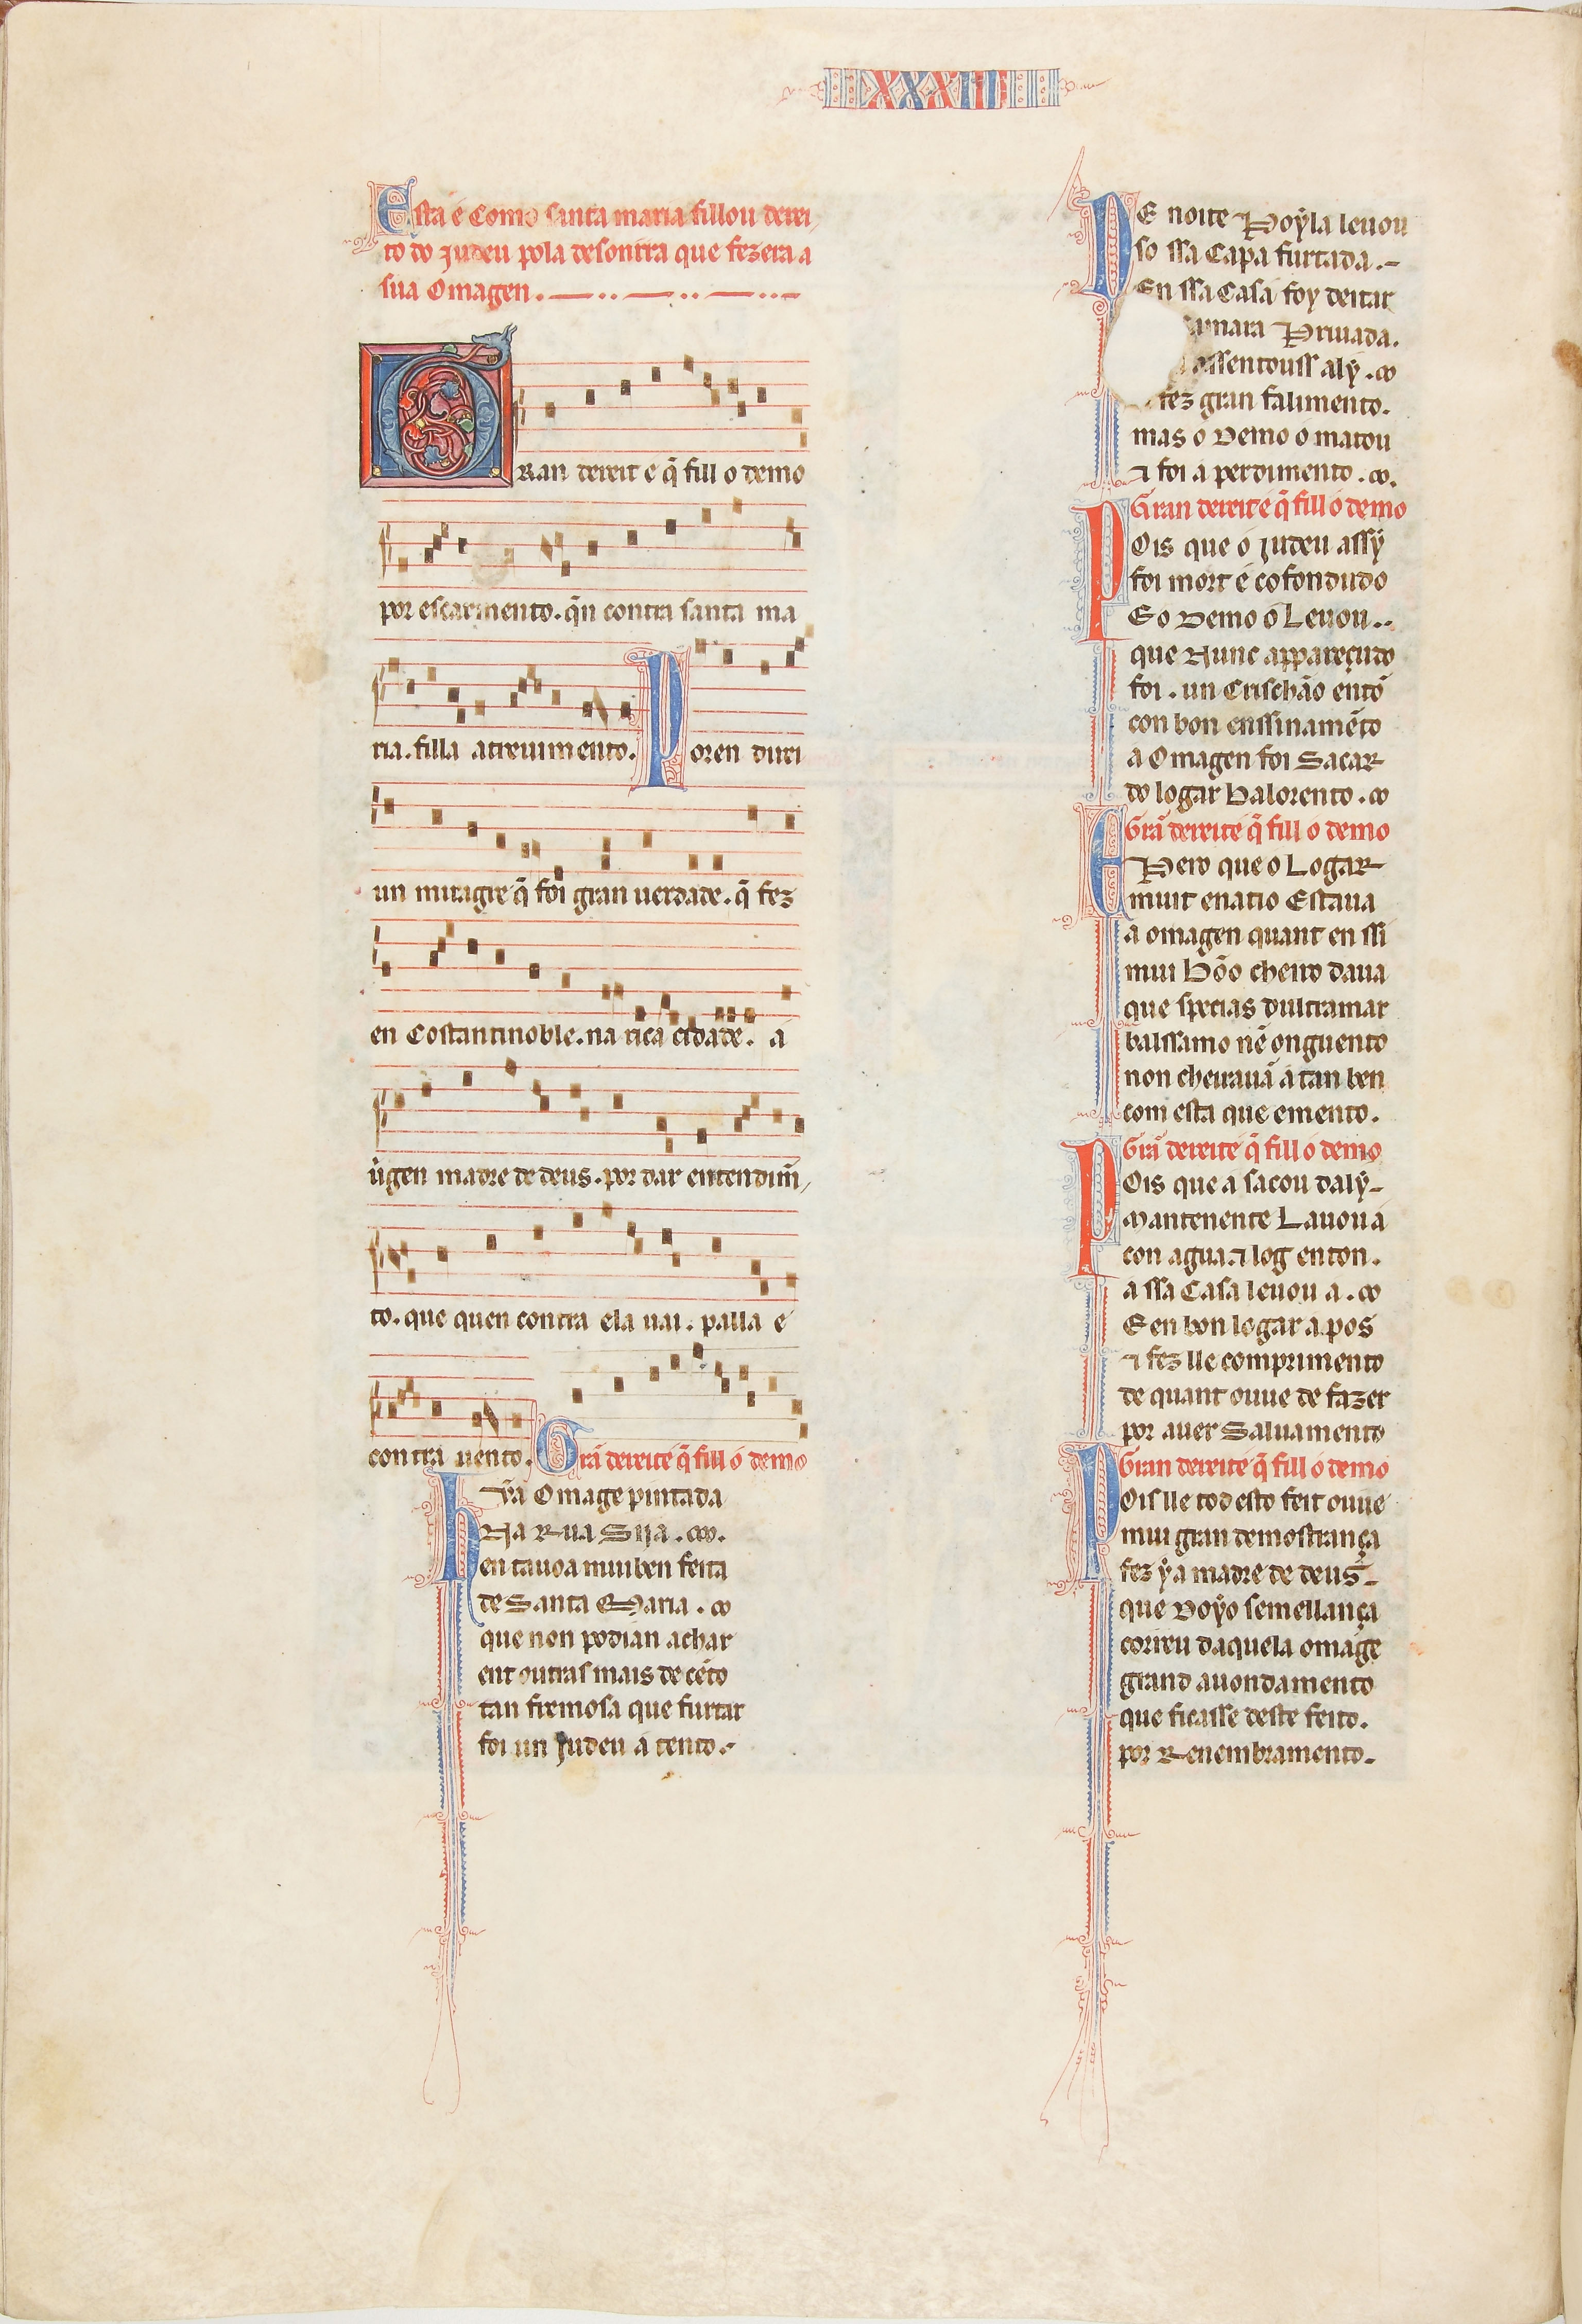 XXXIIII
Esta é Como santa maria fillou derei
to do judeu pola desonrra que fezera a
sua Omagen.
GRan dereit e q̃ fill o demo
por escarmento. q̃n contra santa ma
ria. filla atreuimento. Poren direi
un miragre q̃ foi gran uerdade. q̃ fez
en Costantinoble. na rica cidade. a
uirgen madre de deus. por dar entendim̃
to. que quen contra ela uai. palla e
contra uento. Grã dereite q̃ fill o demo
hỹa Omage pintada
Na Rua Sija.
en tauoa mui ben feita
de Santa Maria.
que non podian achar
ent outras mais de cẽto
tan fremosa que furtar
foi un Judeu a tento.
DE noite Poyla leuou
so ssa Capa furtada.
En ssa Casa foy deitar
Priuada.
assentouss aly.
fez gran falimento.
mas o Demo o matou
⁊ foi a perdimento.
Gran dereite q̃ fill o demo
POis que o judeu assy
foi mort e cofondudo
E o Demo o Leuou..
que Nunc appareçudo
foi. un Crischão entõ
con bon enssinamẽto
a Omagen foi Sacar
do logar balorento.
Grã dereite q̃ fill o demo
EPero que o Logar
muit enatio Estaua
a omagen quant en ssi
mui bõo cheiro daua
que specias dultramar
balssamo nẽ onguento
non cheirauã a tan ben
com esta que emento.
Grã dereite q̃ fill o demo
POis que a sacou daly
Mantenente Lauou a
con agua. ⁊ log enton.
a ssa Casa leuou a.
E en bon logar a pos
⁊ fez lle comprimento
de quant ouue de fazer
por auer Saluamento
Gran dereite q̃ fill o demo
POis lle tod esto feit ouue
mui gran demostrança
fez y a madre de deus
que Doyo semellança
correu daquela omagẽ
grand auondamento
que ficasse deste feito.
por Renembramento.